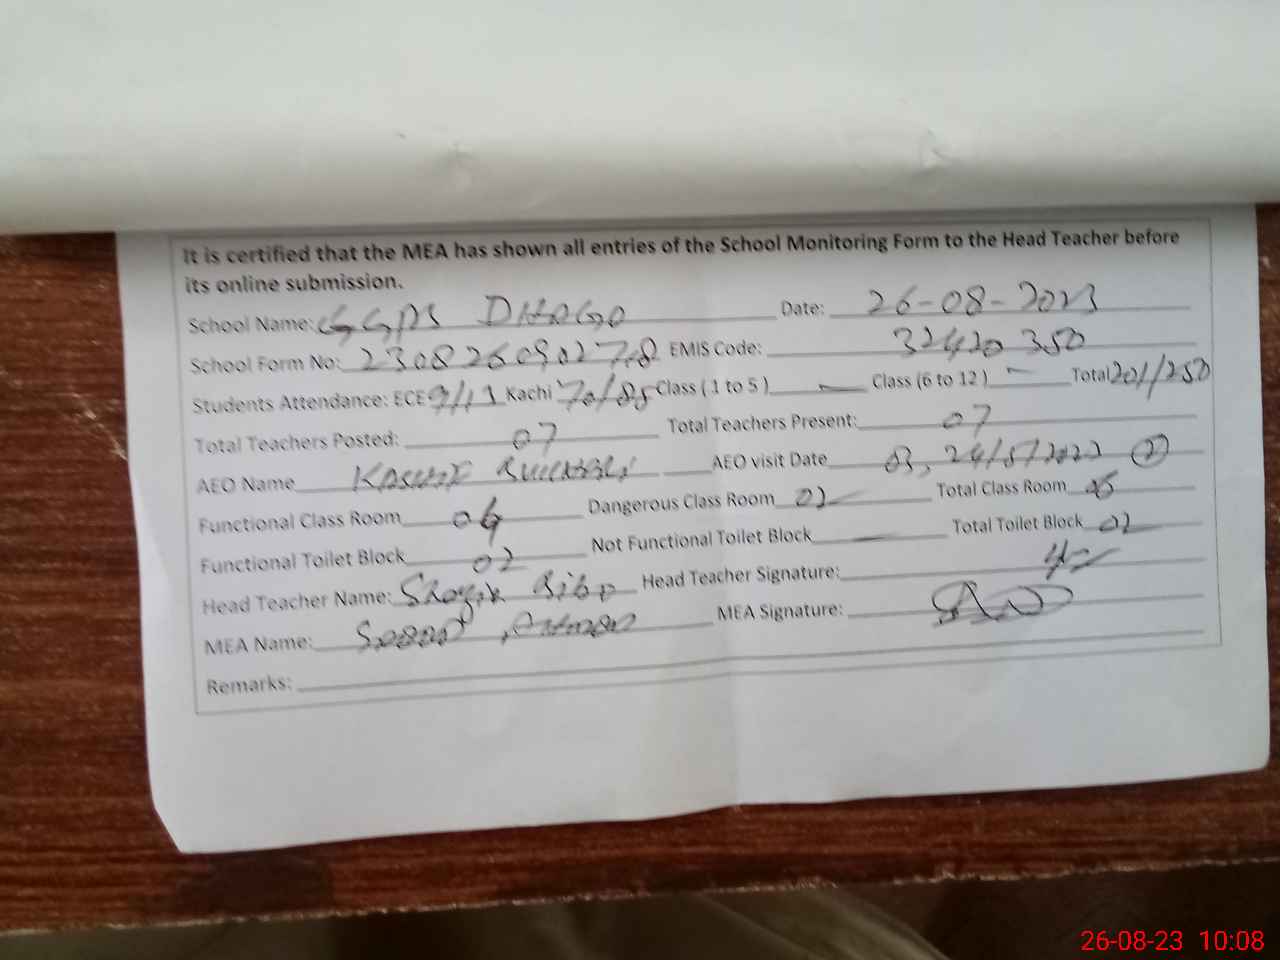 It is certified that the MEA has shown all entries of the School Monitoring Form to the Head Teacher before
its online submission.
School Name: GGPS DHAGO Date: 26-08-2023
School Form No: EMIS Code: 32420350
Students Attendance: ECE 9/11 Kachi 70/85 Class ( 1 to 5 ) — Class (6 to 12 ) — Total 201/250
Total Teachers Posted: 07 Total Teachers Present: 07
AEO Name AEO visit Date 03,
Functional Class Room 04 Dangerous Class Room 02 Total Class Room
Functional Toilet Block 02 Not Functional Toilet Block — Total Toilet Block 02
Head Teacher Name: Bibi Head Teacher Signature:
MEA Name: MEA Signature:
Remarks:
26-08-23 10:08